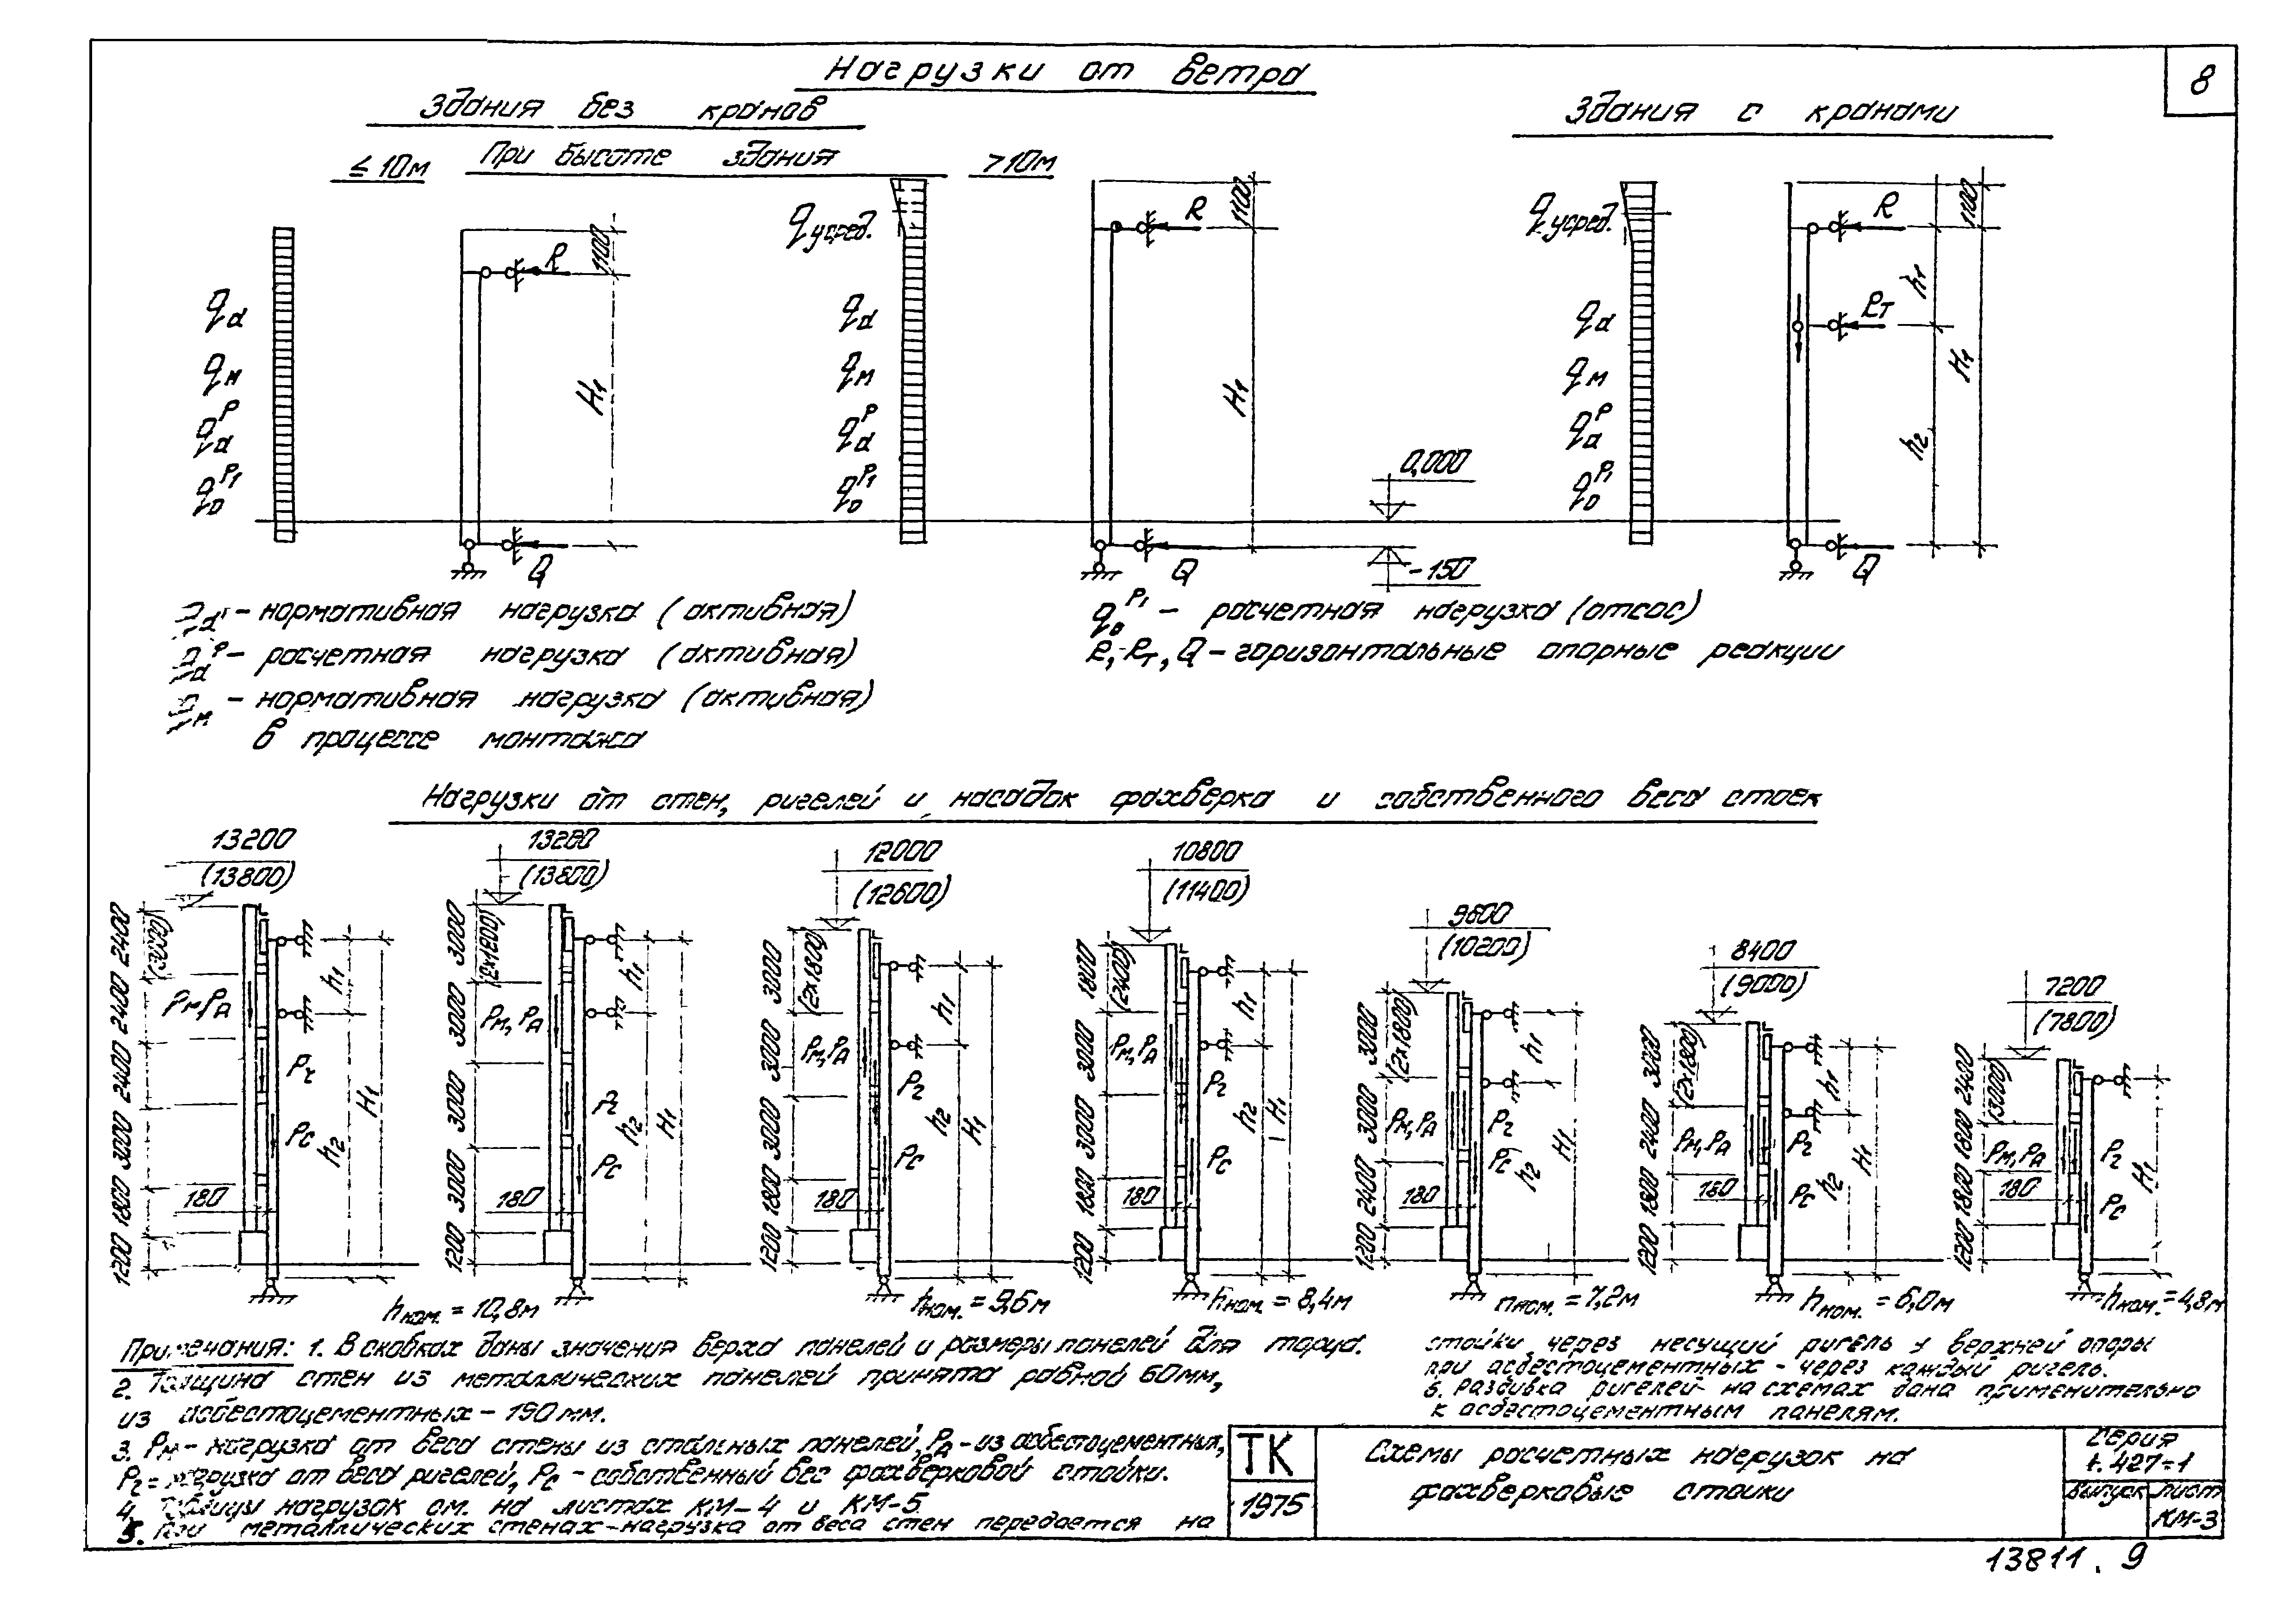 8
Нагрузки от ветра
Здания без кранов
Здания с кранами
≤ 10м При высоте здания >10м
qусред.
qусред.
1100
R
H₁
qа
qм
qаᴾ
q₀ᴾ¹
Q
1100
R
H₁
qа
qм
qаᴾ
q₀ᴾ¹
Q
0,000
-150
1100
R
Rт
h₁
H₁
h₂
qа
qм
qаᴾ
q₀ᴾ¹
Q
qа - нормативная нагрузка (активная)
qаᴾ - расчетная нагрузка (активная)
qм - нормативная нагрузка (активная)
в процессе монтажа
q₀ᴾ¹ - расчетная нагрузка (отсос)
R, Rт, Q - горизонтальные опорные реакции
Нагрузки от стен, ригелей и насадок фахверка и собственного веса стоек
13200
(13800)
1200 1800 3000 2400 2400 2400
(3000)
Рм, РА
Рг
Рс
180
h₁
h₂
H₁
hном. = 10,8м
13200
(13800)
1200 3000 3000 3000 3000
(2x1800)
Рм, РА
Рг
Рс
180
h₁
h₂
H₁
12000
(12600)
1200 1800 3000 3000 3000
(2x1800)
Рм, РА
Рг
Рс
180
h₁
h₂
H₁
hном. = 9,6м
10800
(11400)
1200 1800 3000 3000 1800
(2400)
Рм, РА
Рг
Рс
180
h₁
h₂
H₁
hном. = 8,4м
9600
(10200)
1200 2400 3000 3000
(2x1800)
Рм, РА
Рг
Рс
180
h₁
h₂
H₁
hном. = 7,2м
8400
(9000)
1200 1800 2400 3000
(2x1800)
Рм, РА
Рг
Рс
180
h₁
h₂
H₁
hном. = 6,0м
7200
(7800)
1200 1800 1800 2400
(3000)
Рм, РА
Рг
Рс
180
H₁
hном. = 4,8м
Примечания: 1. В скобках даны значения верха панелей и размеры панелей для торца.
2. Толщина стен из металлических панелей принята равной 60мм,
из асбестоцементных - 190 мм.
3. Рм - нагрузка от веса стены из стальных панелей, РА - из асбестоцементных,
Рг - нагрузка от веса ригелей, Рс - собственный вес фахверковой стойки.
4. Таблицы нагрузок см. на листах КМ-4 и КМ-5.
5. При металлических стенах - нагрузка от веса стен передается на
стойки через несущий ригель у верхней опоры
при асбестоцементных - через каждый ригель.
6. Разбивка ригелей на схемах дана применительно
к асбестоцементным панелям.
ТК
1975
Схемы расчетных нагрузок на
фахверковые стойки
Серия
1.427-1
Выпуск
Лист
КМ-3
13811. 9